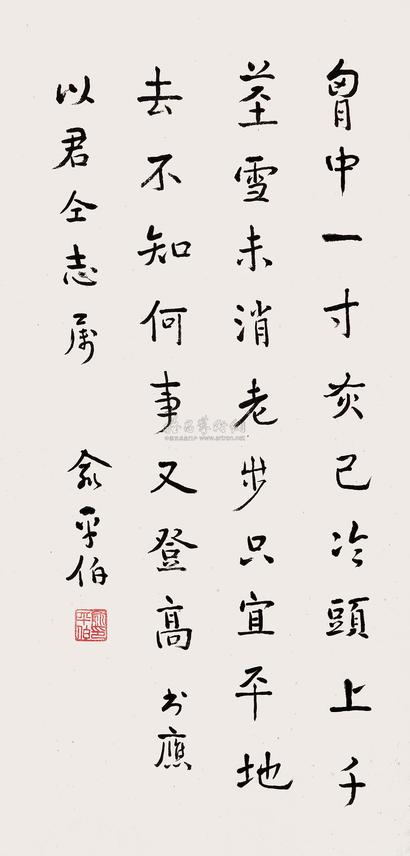 胷中一寸灰已冷頭上千
茎雪未消老步只宜平地
去不知何事又登高 书應
以君仝志属 俞平伯
www.artron.net